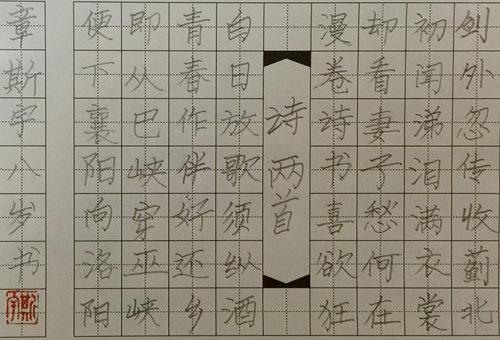 剑外忽传收蓟北
初闻涕泪满衣裳
却看妻子愁何在
漫卷诗书喜欲狂
诗两首
白日放歌须纵酒
青春作伴好还乡
即从巴峡穿巫峡
便下襄阳向洛阳
章斯宇八岁书